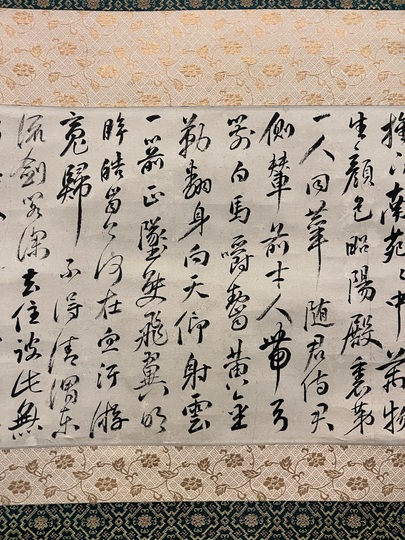 旌下南苑々中萬物
生顏色昭陽殿裏第
一人同輦隨君侍君
側輦前才人帶弓
箭白馬嚼齧黃金
勒翻身向天仰射雲
一箭正墜雙飛翼明
眸皓齒今何在血汙游
魂歸不得清渭東
流劍閣深去住彼此無